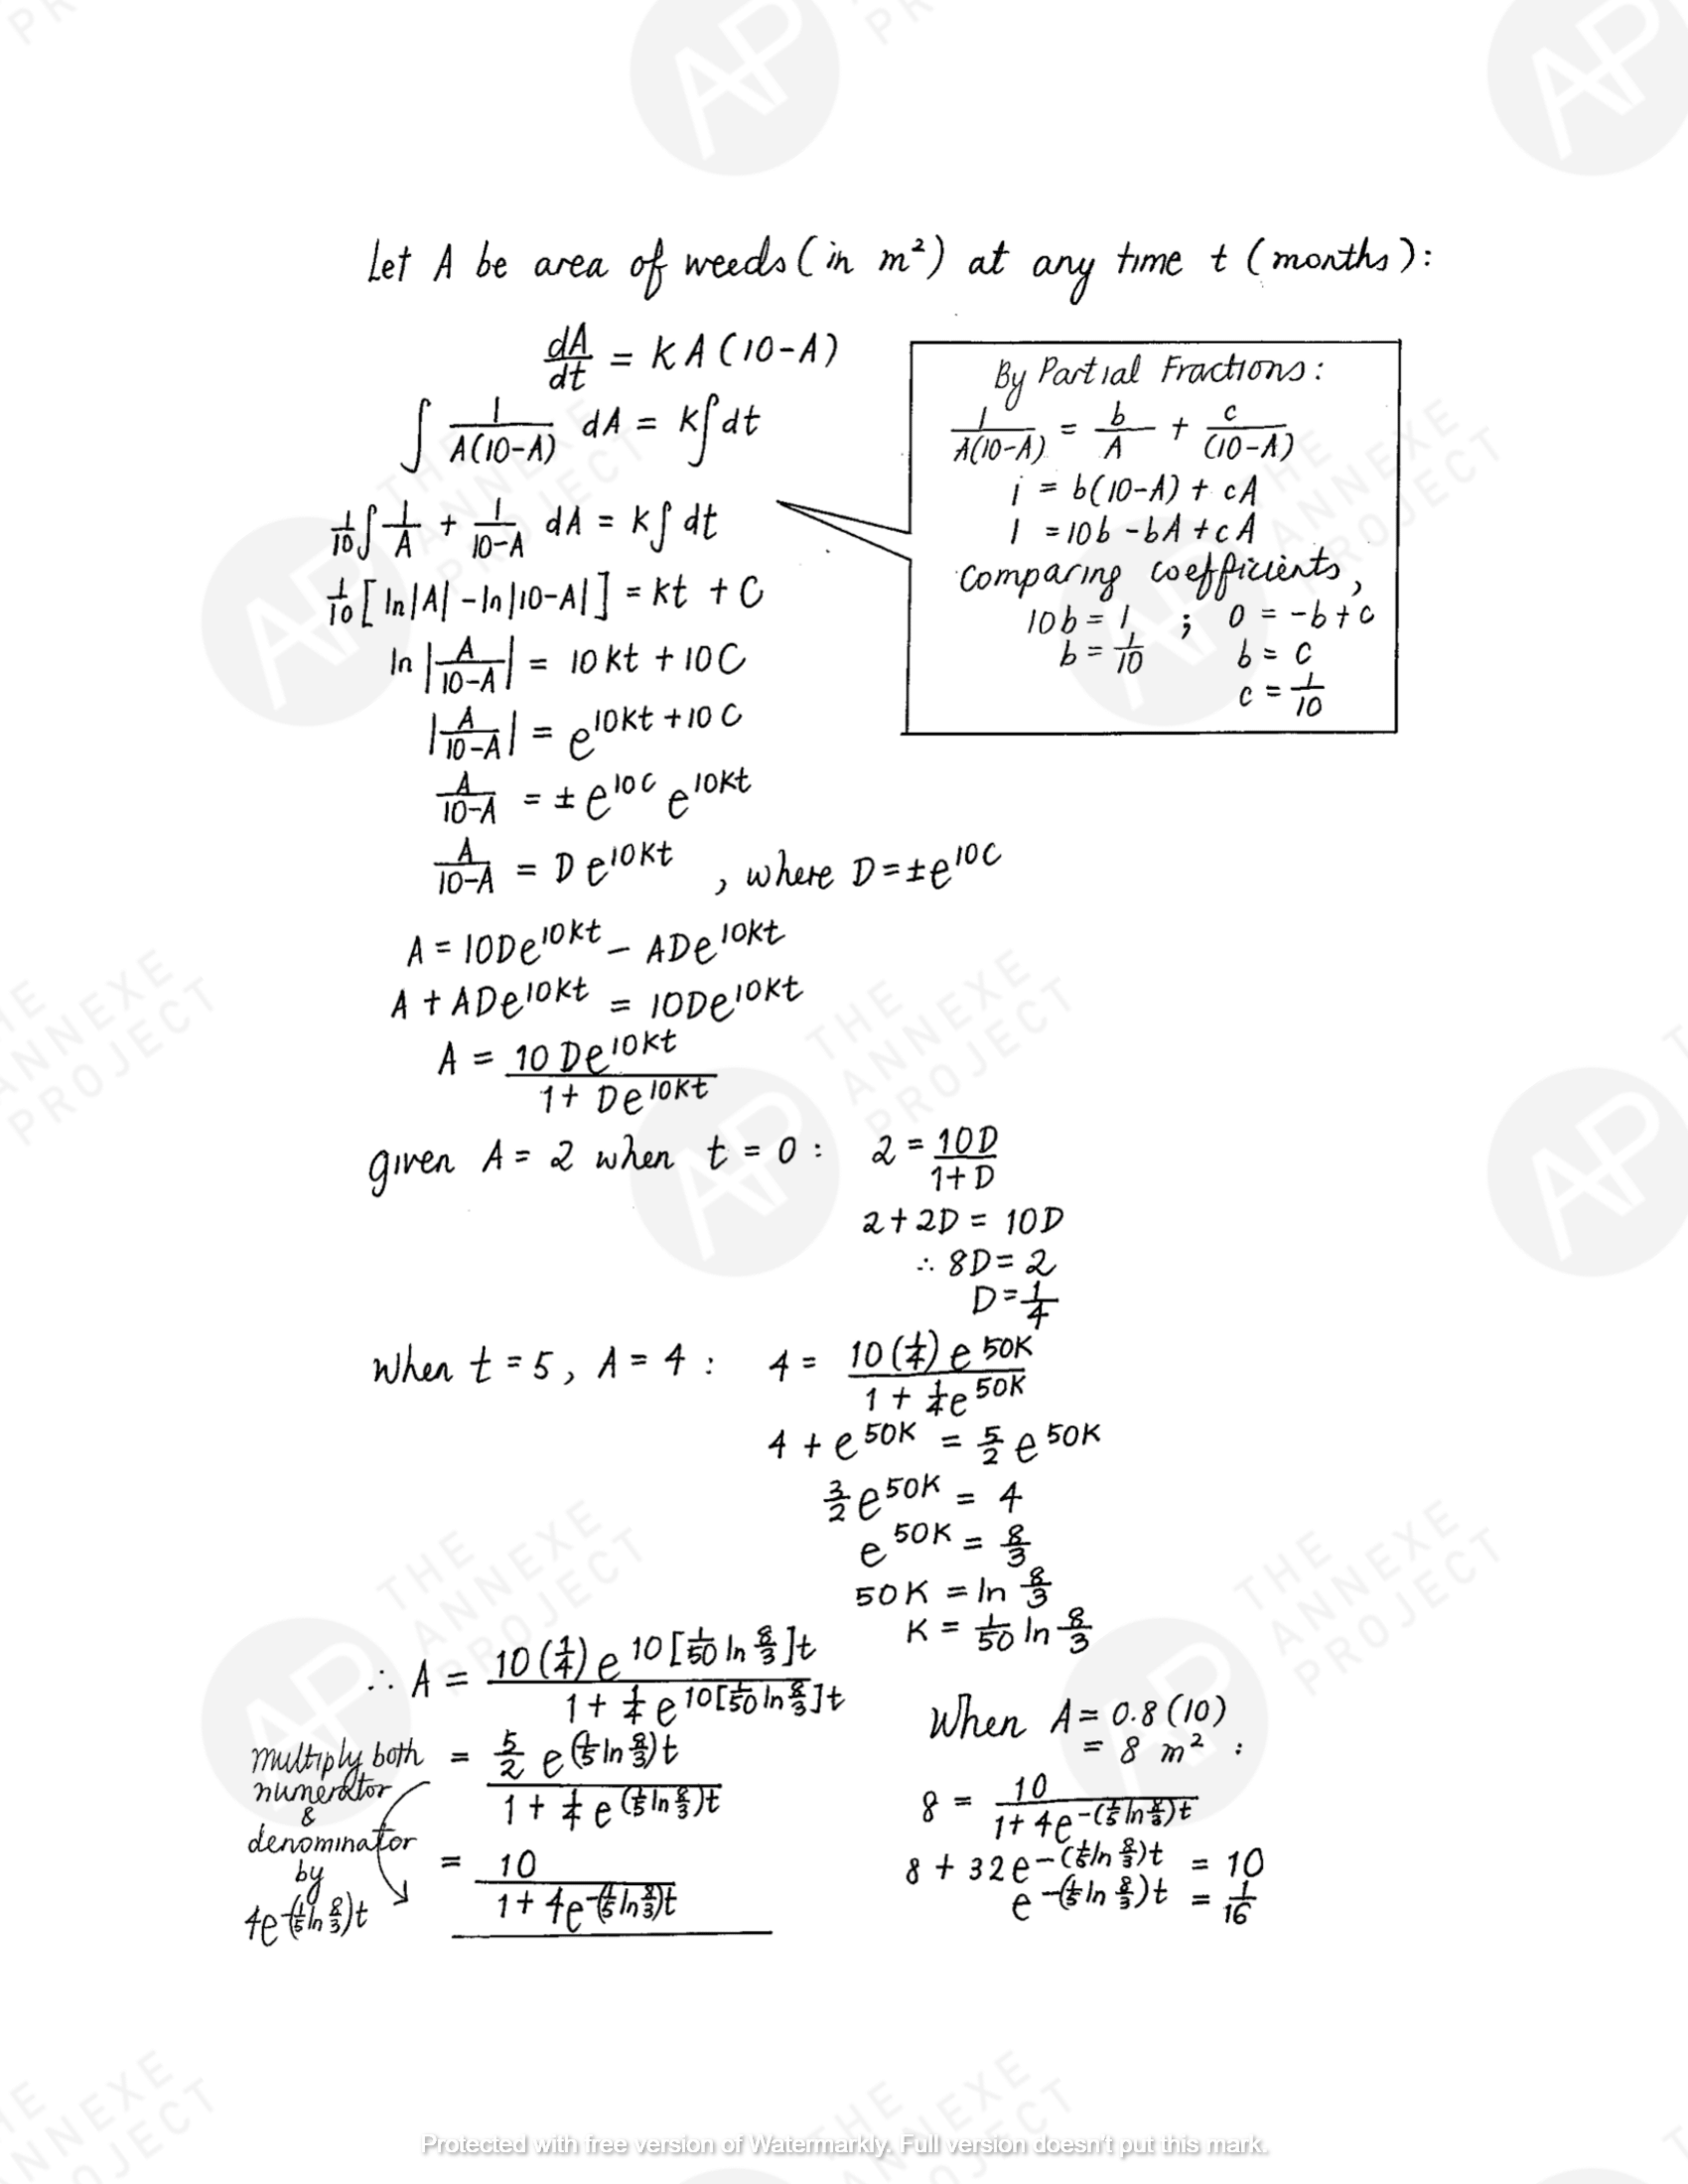 Let A be area of weeds (in m²) at any time t (months):
dA/dt = kA(10-A)
∫ 1/(A(10-A)) dA = k∫dt
1/10 ∫ 1/A + 1/(10-A) dA = k∫ dt
1/10 [ln|A| - ln|10-A|] = kt + C
ln |A/(10-A)| = 10kt + 10C
|A/(10-A)| = e^(10kt + 10C)
A/(10-A) = ± e^(10C) e^(10kt)
A/(10-A) = D e^(10kt) , where D = ±e^(10C)
By Partial Fractions:
1/(A(10-A)) = b/A + c/(10-A)
1 = b(10-A) + cA
1 = 10b - bA + cA
Comparing coefficients,
10b = 1 ; 0 = -b + c
b = 1/10 b = c
c = 1/10
A = 10De^(10kt) - ADe^(10kt)
A + ADe^(10kt) = 10De^(10kt)
A = 10De^(10kt) / (1 + De^(10kt))
given A = 2 when t = 0 : 2 = 10D/(1+D)
2 + 2D = 10D
∴ 8D = 2
D = 1/4
When t = 5, A = 4 : 4 = 10(1/4)e^(50k) / (1 + 1/4 e^(50k))
4 + e^(50k) = 5/2 e^(50k)
3/2 e^(50k) = 4
e^(50k) = 8/3
50k = ln 8/3
k = 1/50 ln 8/3
∴ A = 10(1/4)e^(10[1/50 ln 8/3]t) / (1 + 1/4 e^(10[1/50 ln 8/3]t))
= 5/2 e^((1/5 ln 8/3)t) / (1 + 1/4 e^((1/5 ln 8/3)t))
multiply both
numerator
&
denominator
by
4e^(-(1/5 ln 8/3)t)
= 10 / (1 + 4e^(-(1/5 ln 8/3)t))
When A = 0.8(10)
= 8 m² :
8 = 10 / (1 + 4e^(-(1/5 ln 8/3)t))
8 + 32e^(-(1/5 ln 8/3)t) = 10
e^(-(1/5 ln 8/3)t) = 1/16
THE ANNEXE PROJECT
AP
Protected with free version of Watermarkly. Full version doesn't put this mark.